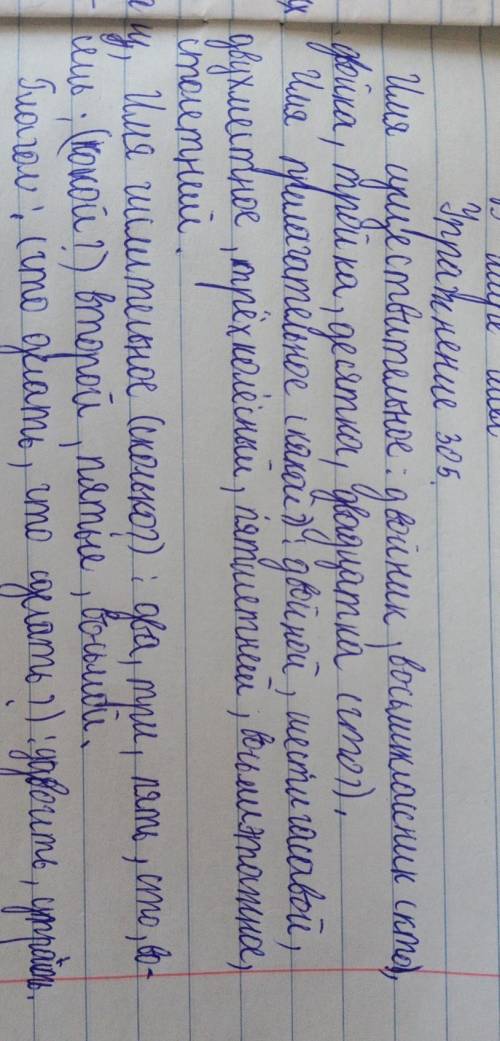 Упражнение 305.
Имя существительное: двойник, восьмиклассник (кто),
двойка, тройка, десятка, двадцатка (что?).
Имя прилагательное (какой?): двойной, шестиглавой,
двухместное, трёхколёсный, пятилетней, восьмиэтажное,
столетний.
Имя числительное (сколько?): два, три, пять, сто, во-
семь; (какой?) второй, пятые, восьмой.
Глагол: (что делать, что сделать?): удвоить, утроить.